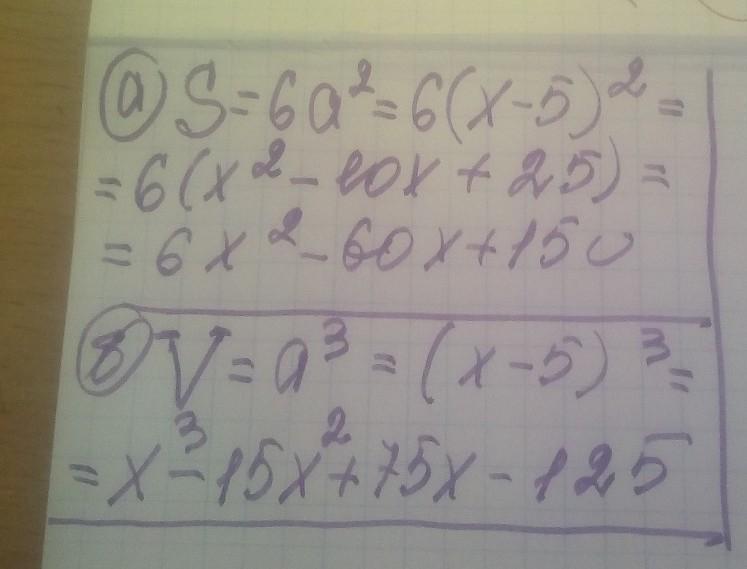 а) S=6a²=6(x-5)²=
=6(x²-10x+25)=
=6x²-60x+150
в) V=a³=(x-5)³=
=x³-15x²+75x-125